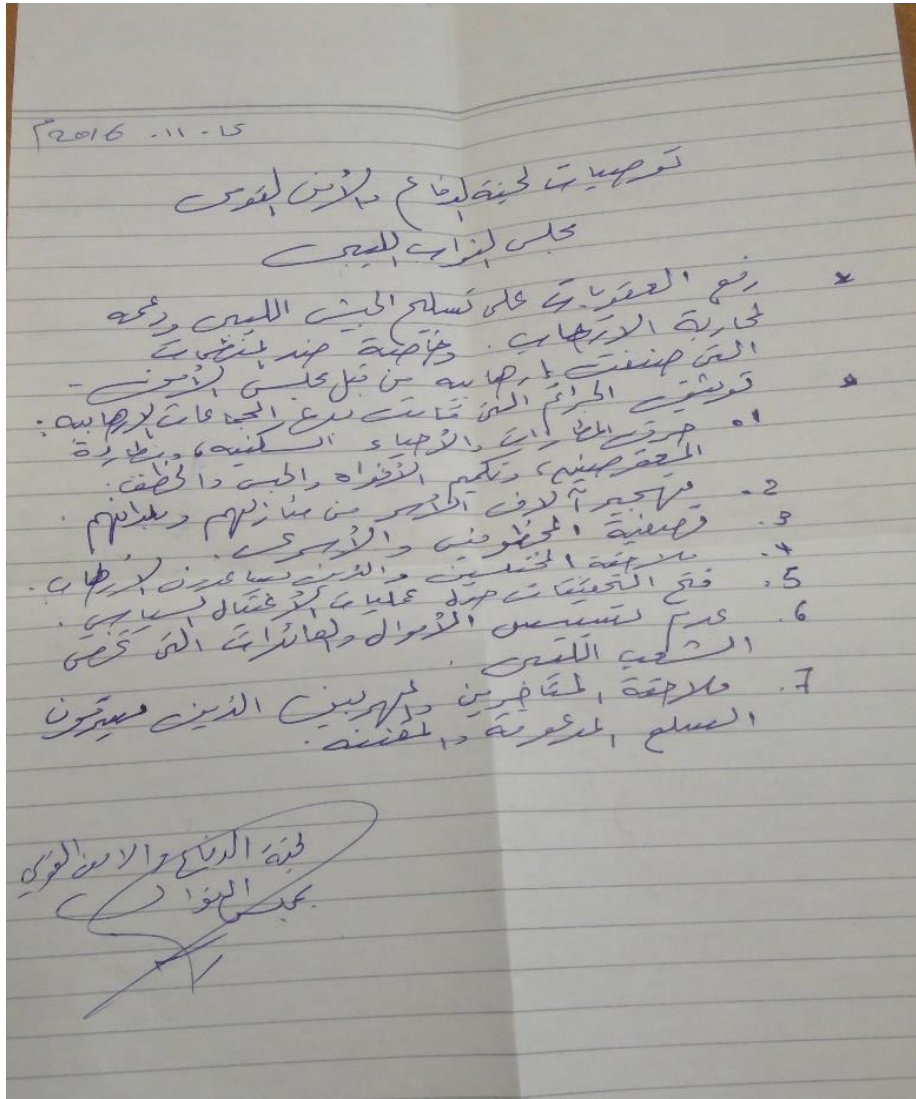 2016 - 11 - 15م
توصيات لجنة الدفاع والأمن القومي
مجلس النواب الليبي
* رفع العقوبات على تسليح الجيش الليبي ودعمه
لمحاربة الارهاب. وخاصة ضد المنظمات
التي صنفت إرهابيه من قبل مجلس الأمن -
* توثيق الجرائم التي قامت بها الجماعات الإرهابيه :
1. حرق المطارات والأحياء السكنيه، ومطاردة
المعترضين، وتكميم الأفواه والحبس والخطف.
2. تهجير آلاف الأسر من منازلهم وبلدانهم.
3. تصفية المخطوفين والأسرى.
4. ملاحقة المختلسين والذين يساعدون الإرهاب.
5. فتح التحقيقات حول عمليات الأغتيال السياسي.
6. عدم تسييس الأموال والعائدات التي تخص
الشعب الليبي.
7. ملاحقة المتاجرين والمهربين الذين يسرقون
السلع المدعومة والمقننه.
لجنة الدفاع والامن القومي
بمجلس النواب